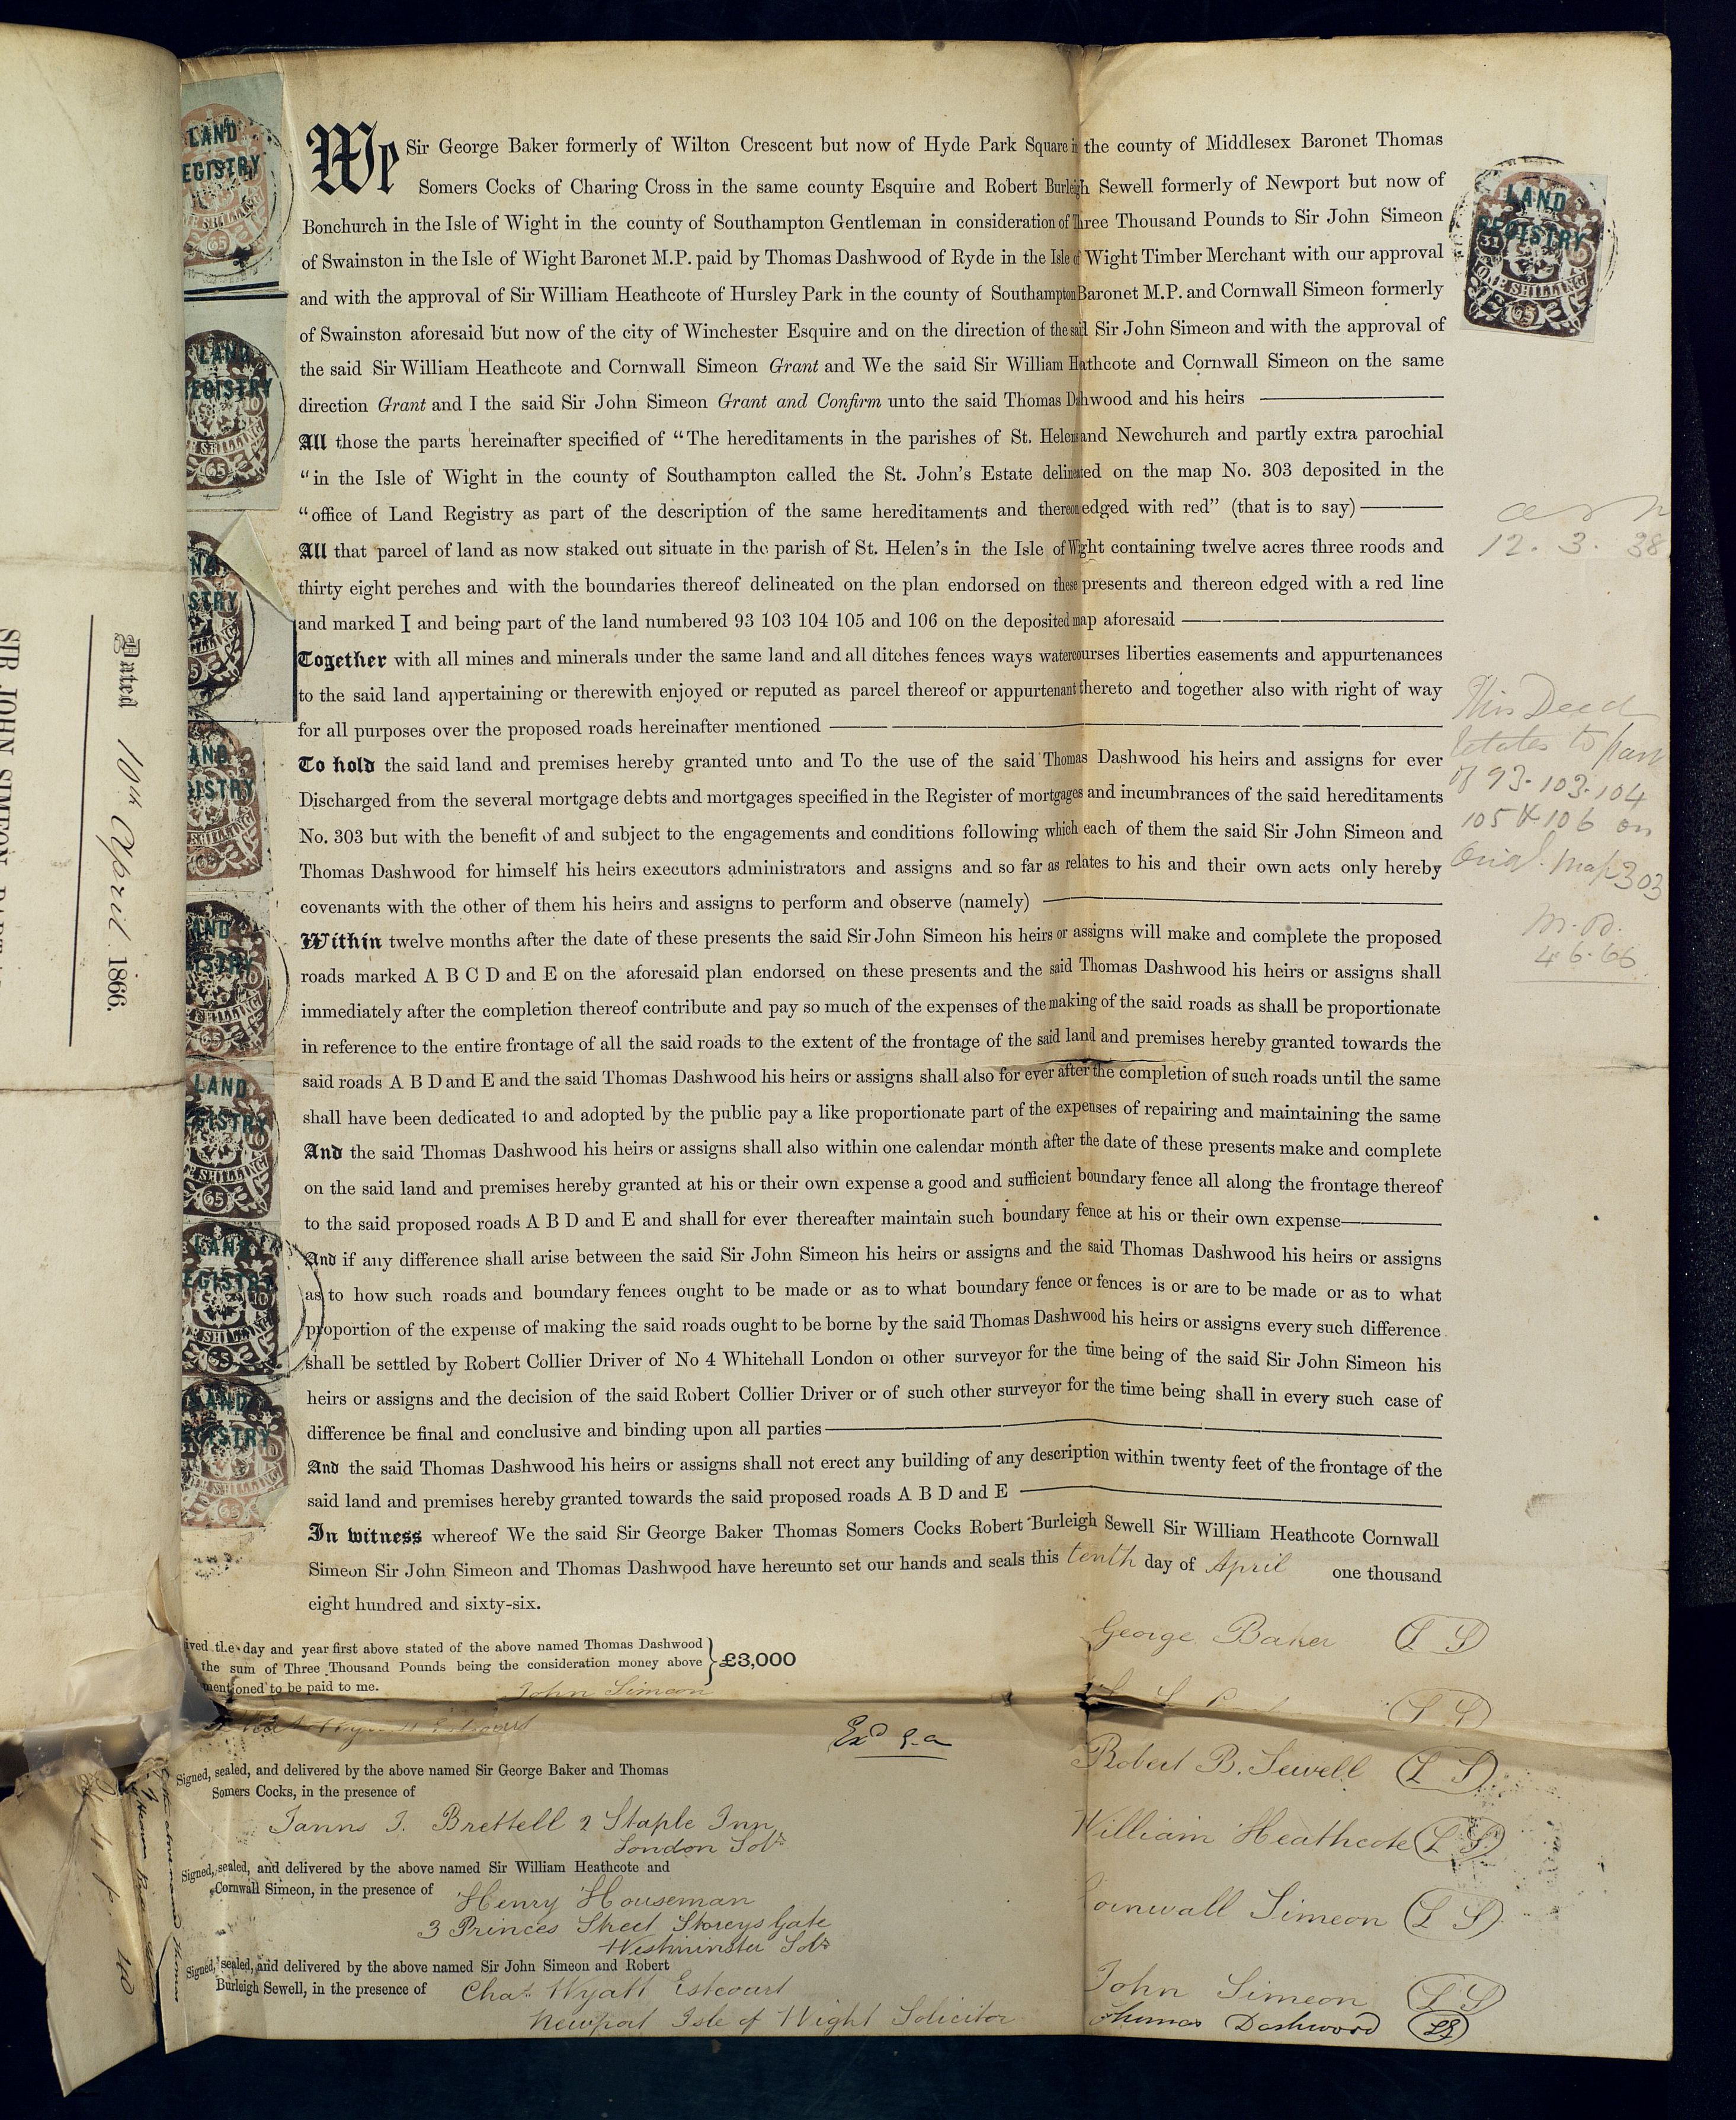 We Sir George Baker formerly of Wilton Crescent but now of Hyde Park Square in the county of Middlesex Baronet Thomas
Somers Cocks of Charing Cross in the same county Esquire and Robert Burleigh Sewell formerly of Newport but now of
Bonchurch in the Isle of Wight in the county of Southampton Gentleman in consideration of Three Thousand Pounds to Sir John Simeon
of Swainston in the Isle of Wight Baronet M.P. paid by Thomas Dashwood of Ryde in the Isle of Wight Timber Merchant with our approval
and with the approval of Sir William Heathcote of Hursley Park in the county of Southampton Baronet M.P. and Cornwall Simeon formerly
of Swainston aforesaid but now of the city of Winchester Esquire and on the direction of the said Sir John Simeon and with the approval of
the said Sir William Heathcote and Cornwall Simeon Grant and We the said Sir William Hathcote and Cornwall Simeon on the same
direction Grant and I the said Sir John Simeon Grant and Confirm unto the said Thomas Dahwood and his heirs
All those the parts hereinafter specified of “The hereditaments in the parishes of St. Helens and Newchurch and partly extra parochial
“in the Isle of Wight in the county of Southampton called the St. John's Estate delineated on the map No. 303 deposited in the
“office of Land Registry as part of the description of the same hereditaments and thereon edged with red” (that is to say)
All that parcel of land as now staked out situate in the parish of St. Helen's in the Isle of Wight containing twelve acres three roods and
thirty eight perches and with the boundaries thereof delineated on the plan endorsed on these presents and thereon edged with a red line
and marked I and being part of the land numbered 93 103 104 105 and 106 on the deposited map aforesaid
Together with all mines and minerals under the same land and all ditches fences ways watercourses liberties easements and appurtenances
to the said land appertaining or therewith enjoyed or reputed as parcel thereof or appurtenant thereto and together also with right of way
for all purposes over the proposed roads hereinafter mentioned
To hold the said land and premises hereby granted unto and To the use of the said Thomas Dashwood his heirs and assigns for ever
Discharged from the several mortgage debts and mortgages specified in the Register of mortgages and incumbrances of the said hereditaments
No. 303 but with the benefit of and subject to the engagements and conditions following which each of them the said Sir John Simeon and
Thomas Dashwood for himself his heirs executors administrators and assigns and so far as relates to his and their own acts only hereby
covenants with the other of them his heirs and assigns to perform and observe (namely)
Within twelve months after the date of these presents the said Sir John Simeon his heirs or assigns will make and complete the proposed
roads marked A B C D and E on the aforesaid plan endorsed on these presents and the said Thomas Dashwood his heirs or assigns shall
immediately after the completion thereof contribute and pay so much of the expenses of the making of the said roads as shall be proportionate
in reference to the entire frontage of all the said roads to the extent of the frontage of the said land and premises hereby granted towards the
said roads A B D and E and the said Thomas Dashwood his heirs or assigns shall also for ever after the completion of such roads until the same
shall have been dedicated to and adopted by the public pay a like proportionate part of the expenses of repairing and maintaining the same
And the said Thomas Dashwood his heirs or assigns shall also within one calendar month after the date of these presents make and complete
on the said land and premises hereby granted at his or their own expense a good and sufficient boundary fence all along the frontage thereof
to the said proposed roads A B D and E and shall for ever thereafter maintain such boundary fence at his or their own expense
And if any difference shall arise between the said Sir John Simeon his heirs or assigns and the said Thomas Dashwood his heirs or assigns
as to how such roads and boundary fences ought to be made or as to what boundary fence or fences is or are to be made or as to what
proportion of the expense of making the said roads ought to be borne by the said Thomas Dashwood his heirs or assigns every such difference
shall be settled by Robert Collier Driver of No 4 Whitehall London or other surveyor for the time being of the said Sir John Simeon his
heirs or assigns and the decision of the said Robert Collier Driver or of such other surveyor for the time being shall in every such case of
difference be final and conclusive and binding upon all parties
And the said Thomas Dashwood his heirs or assigns shall not erect any building of any description within twenty feet of the frontage of the
said land and premises hereby granted towards the said proposed roads A B D and E
In witness whereof We the said Sir George Baker Thomas Somers Cocks Robert Burleigh Sewell Sir William Heathcote Cornwall
Simeon Sir John Simeon and Thomas Dashwood have hereunto set our hands and seals this tenth day of April one thousand
eight hundred and sixty-six.
ived the day and year first above stated of the above named Thomas Dashwood
the sum of Three Thousand Pounds being the consideration money above
mentioned to be paid to me.
£3,000
John Simeon
Exd
Signed, sealed, and delivered by the above named Sir George Baker and Thomas
Somers Cocks, in the presence of
Brettell 2 Staple Inn
London Solr
Signed, sealed, and delivered by the above named Sir William Heathcote and
Cornwall Simeon, in the presence of
Henry Houseman
3 Princes Street Storeys Gate
Westminster Solr
Signed, sealed, and delivered by the above named Sir John Simeon and Robert
Burleigh Sewell, in the presence of
Chas. Wyatt Estcourt
Newport Isle of Wight Solicitor
George Baker L S
L S
Robert B. Sewell L S
William Heathcote L S
Cornwall Simeon L S
John Simeon L S
Thomas Dashwood LS
a r p
12. 3. 38
This Deed
relates to part
of 93. 103. 104
105 & 106 on
Orial. Map 303
4.6.66
LAND
REGISTRY
ONE SHILLING
Dated 10th April. 1866.
SIR JOHN SIMEON